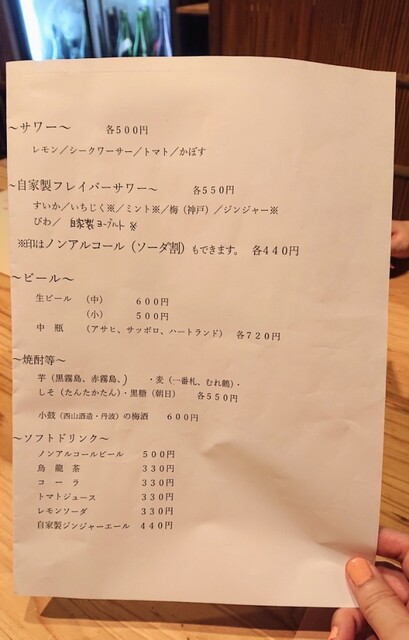 ～サワー～　各５００円
レモン／シークワーサー／トマト／かぼす
～自家製フレイバーサワー～　各５５０円
すいか／いちじく※／ミント※／梅（神戸）／ジンジャー※
びわ／　自家製ヨーグルト※
※印はノンアルコール（ソーダ割）もできます。　各４４０円
～ビール～
生ビール　（中）　６００円
（小）　５００円
中　瓶　（アサヒ、サッポロ、ハートランド）　各７２０円
～焼酎等～
芋（黒霧島、赤霧島、）　・麦（一番札、むれ鶴）・
しそ（たんたかたん）・黒糖（朝日）　各５５０円
小鼓（西山酒造・丹波）の梅酒　６００円
～ソフトドリンク～
ノンアルコールビール　５００円
烏　龍　茶　３３０円
コ　ー　ラ　３３０円
トマトジュース　３３０円
レモンソーダ　３３０円
自家製ジンジャーエール　４４０円